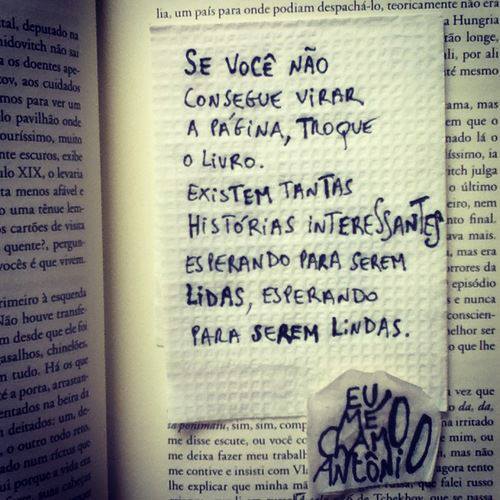 tal, deputado na
nidovitch não sai
a os doentes ape-
tov, aos cuidados
mos para ver um
lo pavilhão onde
ouríssimo, muito
nte escuros, exibe
ulo XIX, o levaria
ta menos afável e
o uma tênue lem-
s cartões de visita
quente?, pergun-
vocês é que vivem.
rimeiro à esquerda
Não houve transfe-
m desde que ele foi
asalhos, chinelões,
n tudo. Há os que
té a porta, arrastan-
entados na beira da
deitados: um, de-
o outro todo reto,
lia, um país para onde podiam despachá-lo, teoricamente não era
a Hungria
tão longe,
ali, por ali
ité mesmo
SE VOCÊ NÃO
CONSEGUE VIRAR
A PÁGINA, TROQUE
O LIVRO.
EXISTEM TANTAS
HISTÓRIAS INTERESSANTES
ESPERANDO PARA SEREM
LIDAS, ESPERANDO
PARA SEREM LINDAS.
ama, mas
em que o
nado lá o
íssimo, ia
itch julga
o último
eiro, nem
nto final.
ava mais.
a, mas era
errores da
episódio
s e nunca
conscien-
elhor ser
o que lhe
EU
ME
CHAMO
ANTÔNIO
a vez que
o da, da,
na irritado
e mim, ou
mas não
agora tento
falei russo
ia ponimaiu, sim, sim, comp
me disse escute, ou você co
me deixa fazer meu trabalh
me contive e insisti com Vl
lhe explicar que minha má